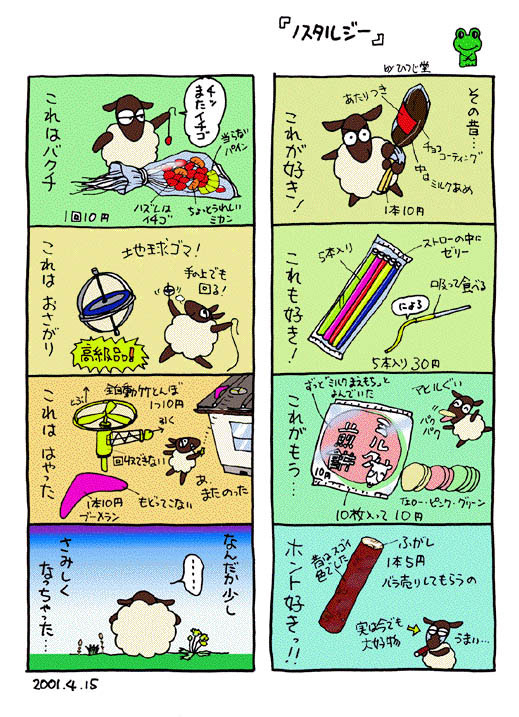 『ノスタルジー』
by ひつじ堂
その昔…
これが好き!
あたりつき
チョコ
コーティング
中は
ミルクあめ
1本10円
これも好き!
5本入り
ストローの中に
ゼリー
口で吸って食べる
によろ
5本入り30円
これがもう…
ずっと"ミルクまえもち"と
よんでいた
ミルク
煎餅
10円
アヒルぐい
パク
パク
イエロー・ピンク・グリーン
10枚入って10円
ホント好きっ!!
昔はスゴイ
色でした
ふがし
1本5円
バラ売りしてもらうの
実は今でも
大好物
うまい…
これはバクチ
チッ
またイチゴ
当らない
パイン
ハズレは
イチゴ
ちょっとうれしい
ミカン
1回10円
これは おさがり
地球ゴマ!
手の上でも
回る!
高級品っ!
これは はやった
自動竹とんぼ
1つ10円
とぶ
引く
回収できない
あ、
またのった
1本10円
ブーメラン
もどってこない
なんだか少し
さみしく
なっちゃった…
‥‥‥
2001.4.15